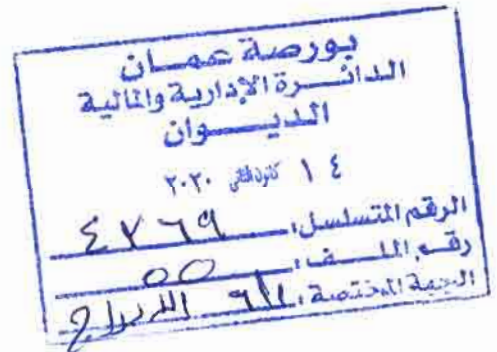 بورصة عمان
الدائرة الإدارية والمالية
الديوان
١٤ كانون الثاني ٢٠٢٠
الرقم المتسلسل: ٤٧٦٩
رقم الملف: ٥٥
الجهة المختصة: الإدراج